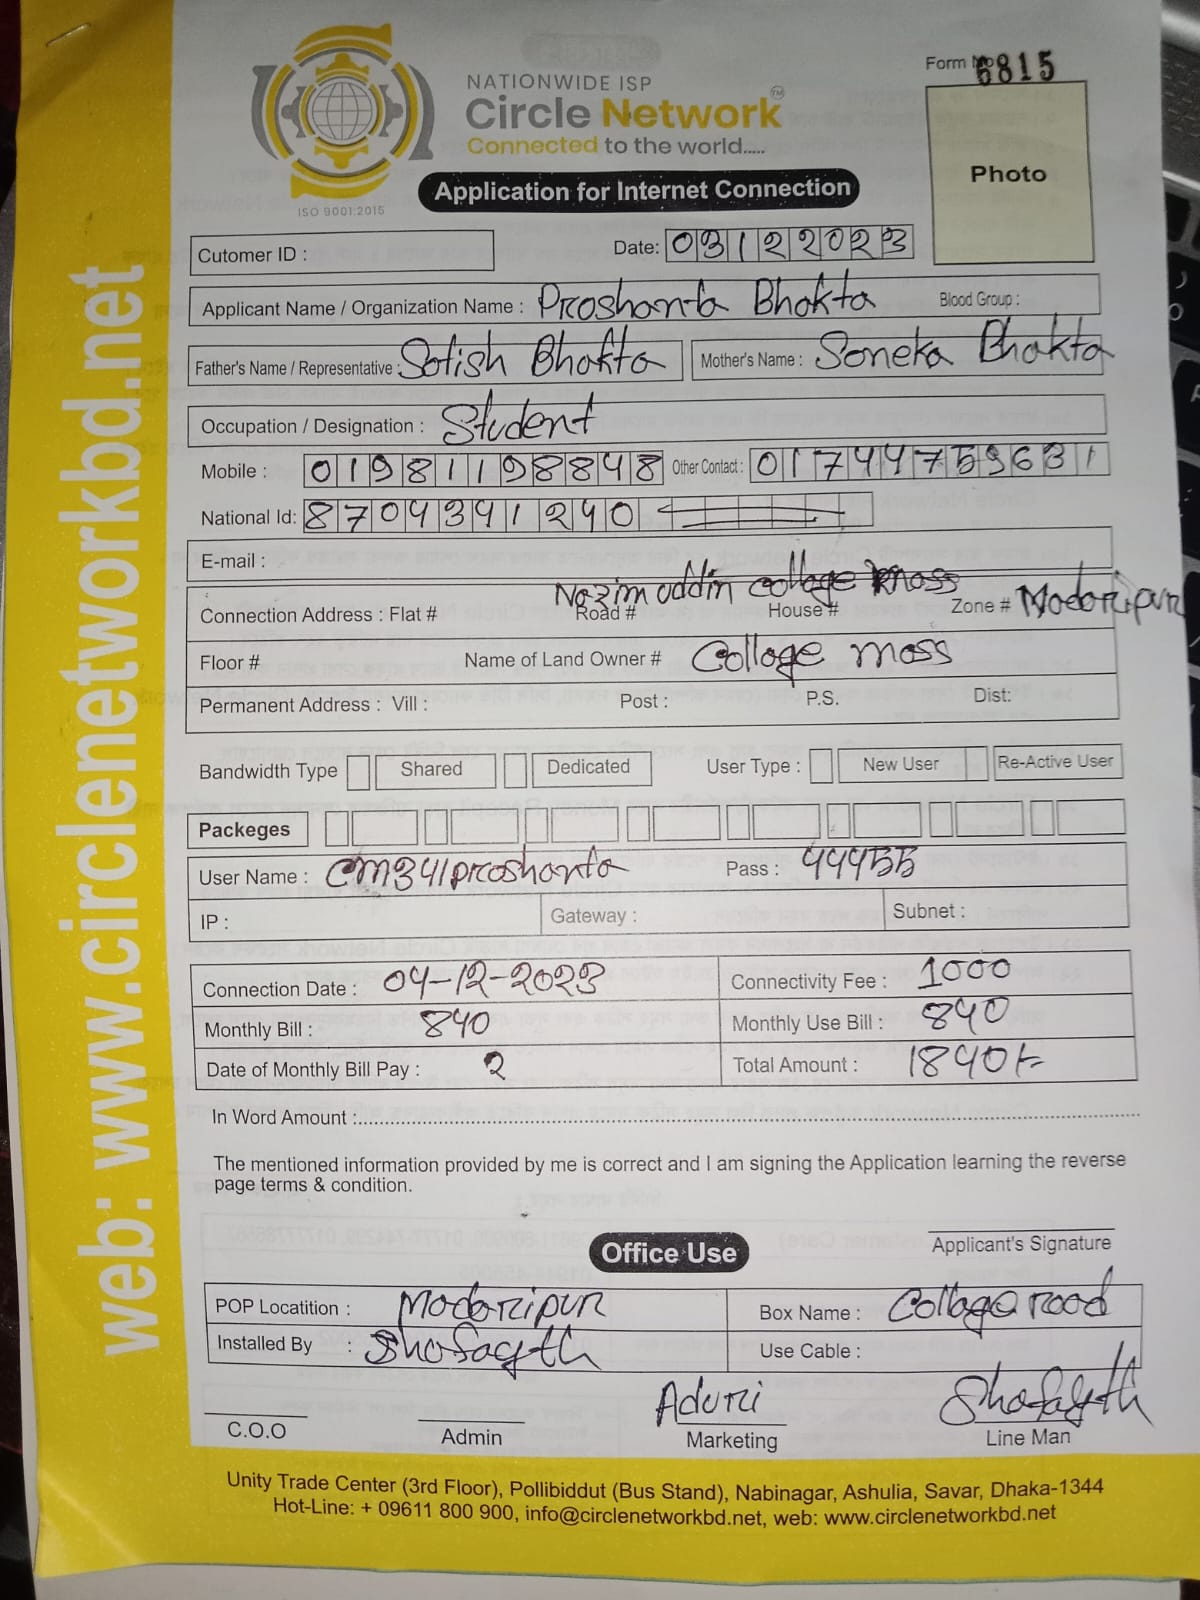 Form No 6815
NATIONWIDE ISP
Circle Network TM
Connected to the world.....
ISO 9001:2015
Application for Internet Connection
Photo
Cutomer ID :
Date: 03122023
Applicant Name / Organization Name : Proshanta Bhakta Blood Group :
Father's Name / Representative : Sotish Bhakta Mother's Name : Soneka Bhakta
Occupation / Designation : Student
Mobile : 01981198848 Other Contact : 01744759631
National Id: 8704341240
E-mail :
Nazim uddin college mass
Connection Address : Flat # Road # House # Zone # Madaripur
Floor # Name of Land Owner # Collage mass
Permanent Address : Vill : Post : P.S. Dist:
Bandwidth Type Shared Dedicated User Type : New User Re-Active User
Packeges
User Name : CM341proshanta Pass : 44455
IP : Gateway : Subnet :
Connection Date : 04-12-2023 Connectivity Fee : 1000
Monthly Bill : 840 Monthly Use Bill : 840
Date of Monthly Bill Pay : 2 Total Amount : 1840/-
In Word Amount :
The mentioned information provided by me is correct and I am signing the Application learning the reverse
page terms & condition.
Applicant's Signature
Office Use
POP Locatition : Madaripur Box Name : Collage road
Installed By : Shafayth Use Cable :
Aduri Shafayth
C.O.O Admin Marketing Line Man
Unity Trade Center (3rd Floor), Pollibiddut (Bus Stand), Nabinagar, Ashulia, Savar, Dhaka-1344
Hot-Line: + 09611 800 900, info@circlenetworkbd.net, web: www.circlenetworkbd.net
web: www.circlenetworkbd.net